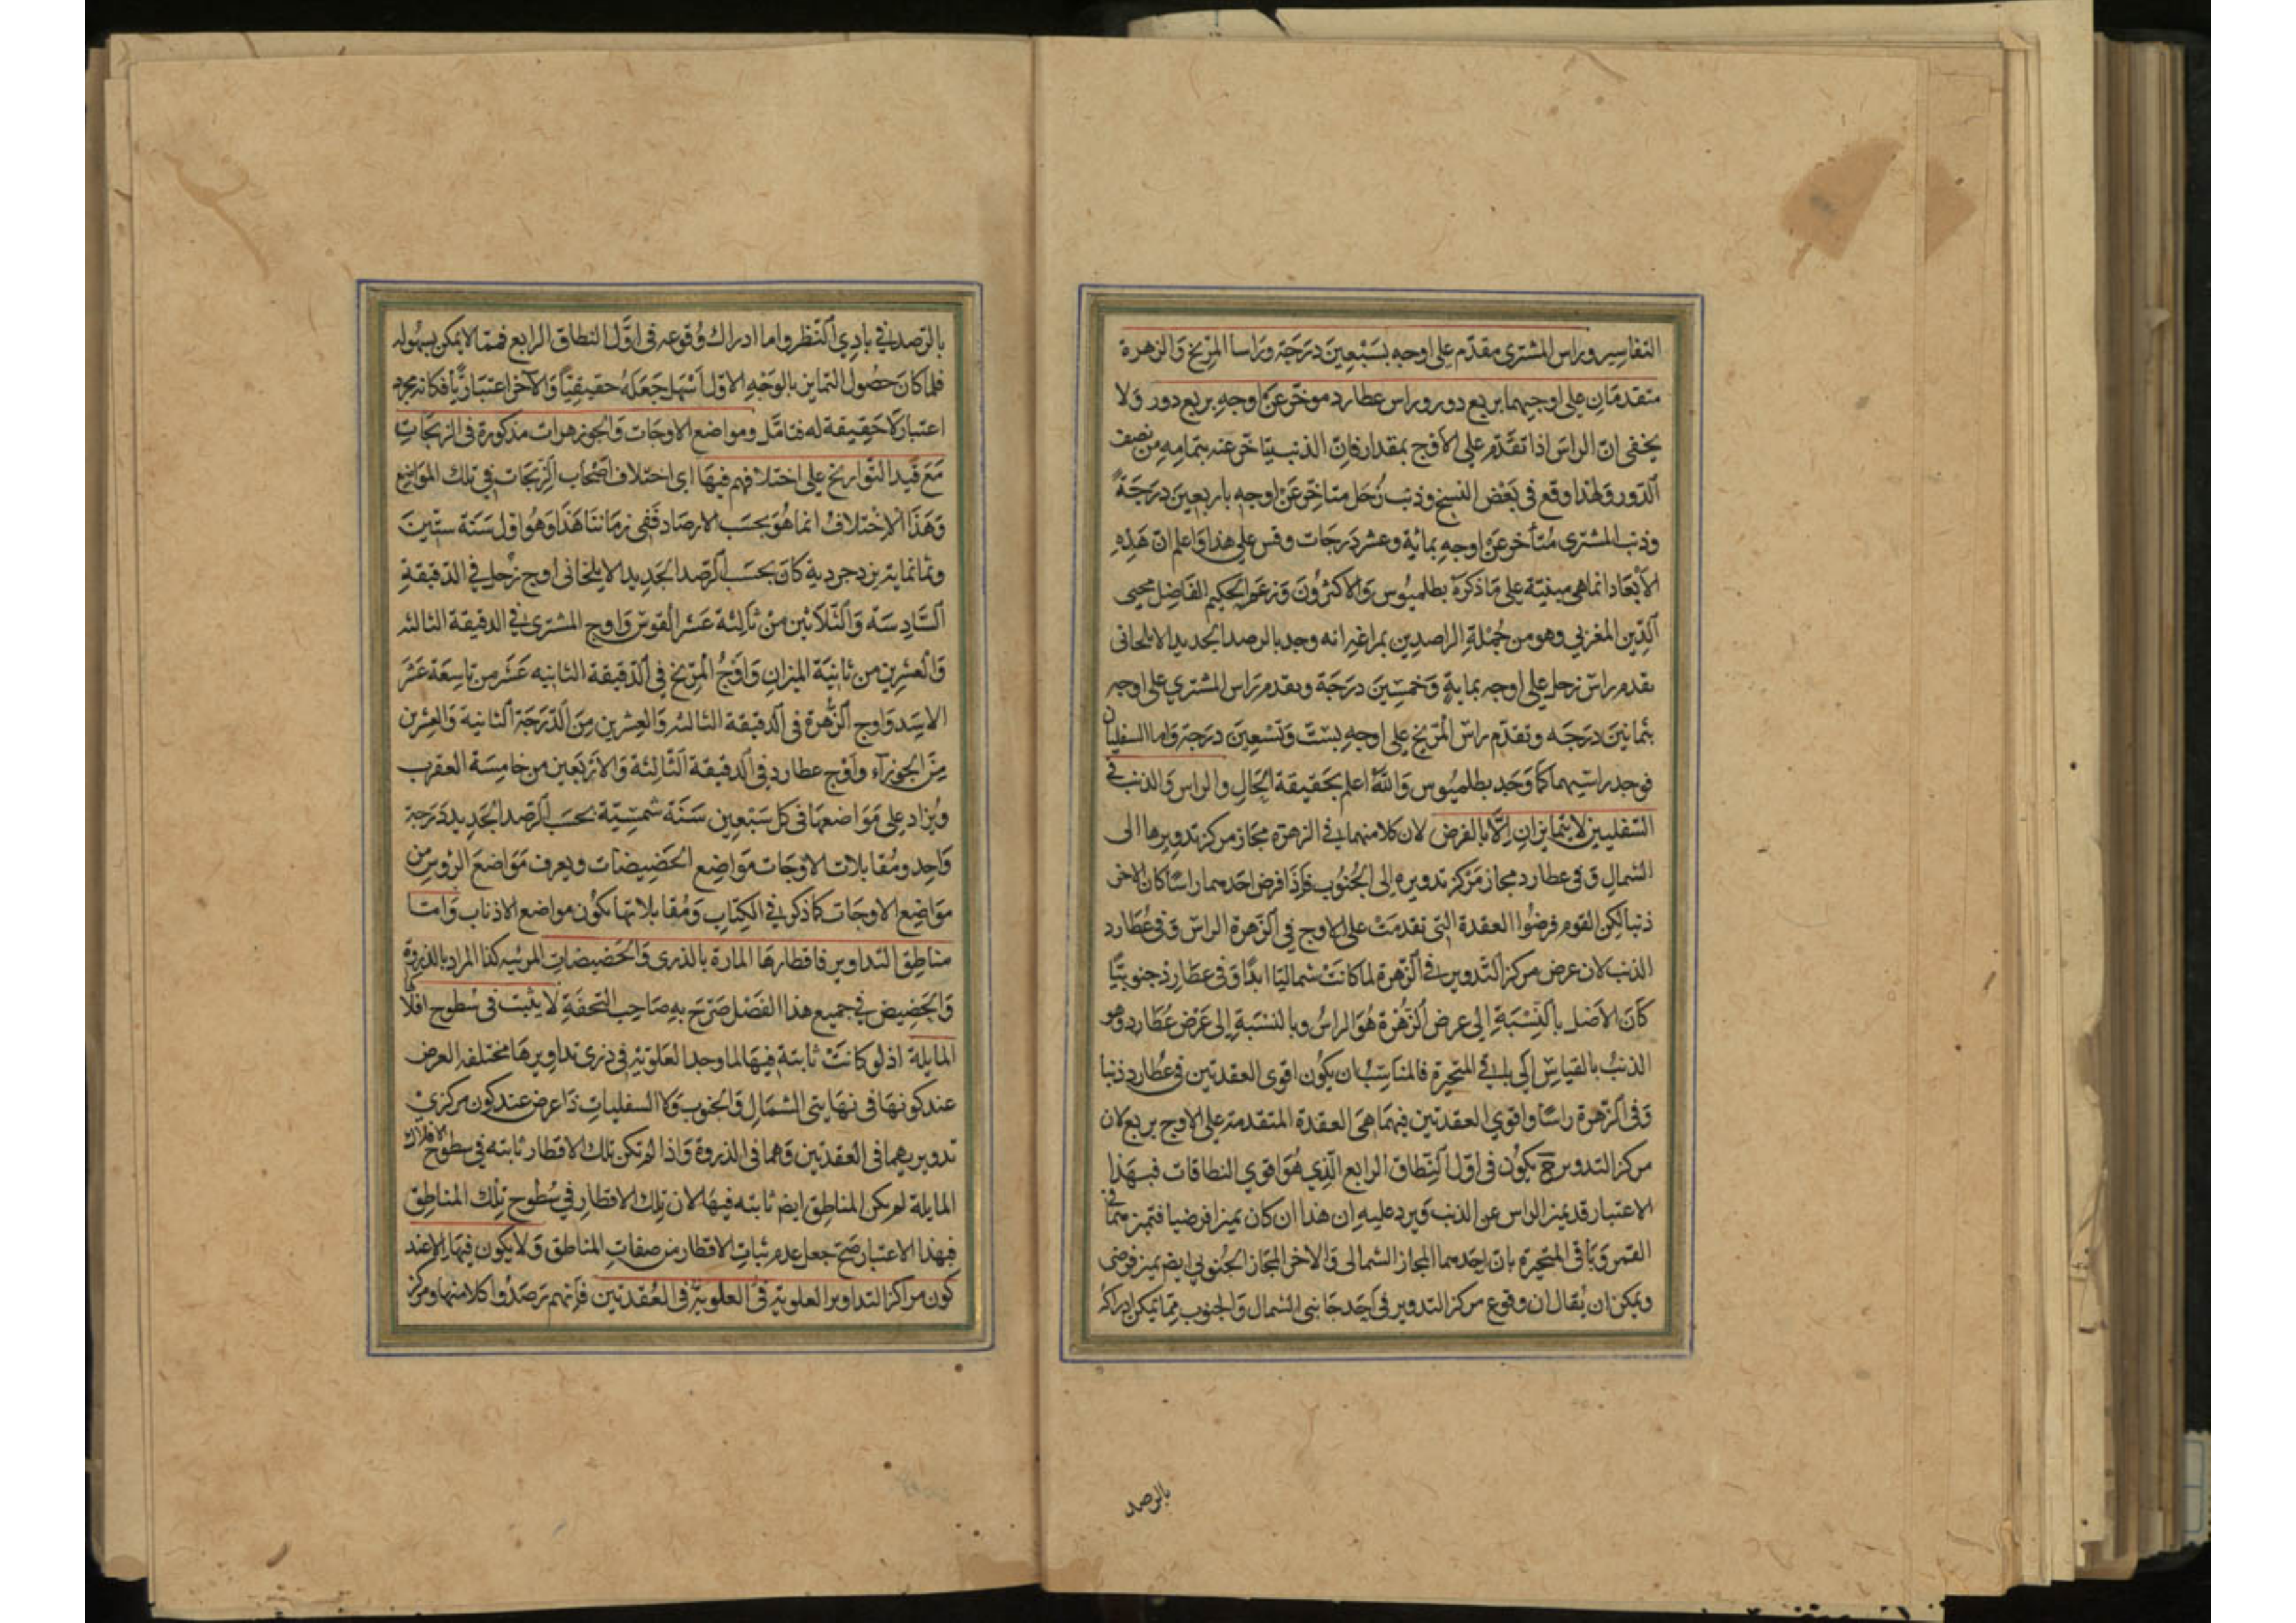 التفاسير وراس المشترى مقدّم على اوجه بسَبْعِينَ دَرَجَة وراسا المرّيخ وَالزهرة
متقدمَانِ على اوجيهما بربع دور وراس عطارد موخّر عَنْ اوجهِ بربع دور وَلا
يخفى انّ الراسَ اذا تقدّم على الاوج بمقدار فانّ الذنب يتاخّر عنه بتمامِهِ من نصف
الدّور وَلهٰذا وقع فى بَعْض النسخ وذنب زُحَل متاخّر عَنْ اوجه باربعينَ دَرَجَةً
وذنب المشترى مُتأخر عَنْ اوجهِ بمائة وعشر دَرَجات وقس على هذا وَاعلم انّ هَذِهِ
الاَبْعَاد انما هى مبنيّة على مَا ذكرَهُ بطلميُوس وَالاكثرُونَ وَزعَم الحكيم الفَاضل محيى
الدِّين المغربى وهو من جُمْلةِ الراصدِين بمراغة انه وجد بالرصد الجديد الايلخانى
تقدم راس زحل على اوجه بمايةٍ وَخمسِينَ دَرَجَة وتقدم رَاس المشتري على اوجه
بثمَانينَ دَرَجَه وتقدّم راس المرّيخ على اوجهِ بستّ وَتسْعِينَ دَرَجَة وَاما السفليان
فوجد راسَيهما كما وَجَد بطلميُوس وَاللهُ اعلم بحَقيقة الحَالِ والراس وَالذنب فى
السّفليين لا يتمايزانِ اِلّا بالفرض لان كلا منهما فى الزهرة مَجاز مركز تدويرها الى
الشمالِ وَ فى عطارد مجاز مَرْكز تدويره الى الجُنُوب فَاِذَا فرض احَدهما راسًا كان الاخر
ذنبا لكِن القوم فرضُوا العقدة التِى تقدمَتْ على الاوج فى الزهرة الراسَ وَفى عُطَارد
الذنب لان عرض مركز التّدوير فى الزّهرة لما كانَتْ شماليّا ابدًا وَفى عطَارد جنوبيًّا
كَانَ الاَصْل بالنّسْبَةِ الى عرض الزُّهْرة هُوَ الراسُ وبالنسْبَةِ اِلى عَرْض عُطَارد هو
الذنبُ بالقياسِ الى باقى المتحيرة فالمناسِبُ ان يكُون اقوى العقدتين فى عُطارد ذنبا
وَفى الزّهرة راسًا واقوي العقدتين فيهمَا هىَ العقدة المتقدمة على الاوج بربع لان
مركز التدوير ح يكُون فى اوّل النّطاق الرابع الّذِي هُوَ اقوي النطاقات فبهَذا
الاعتبار قد يميز الراس عن الذنب وَيرد عليهِ ان هذا ان كان تميزا فرضيا فتميزهما فى
القمر وَباقى المتحيّرة بانّ احَدهما المجاز الشمالى وَالاخر المجَاز الجُنُوبى ايضا تميز فرضى
ويمكن ان يُقال ان وقوع مركز التدوير فى اَحَد جَانبى الشمال وَالجنوب مِمّا يمكن ادراكه
بالرصد
بالرّصد فى بادِي النّظر واما ادراك وُقوعهِ فى اوَّل النطاق الرابع فممّا لا يمكن بسهُوله
فلما كانَ حصُول التمايز بالوَجْهِ الاوّل اَسْهل جَعَلهُ حقيقيّاً وَالآخر اعتبَاريًّا فكانه مجرد
اعتبار لا حَقِيقة له فتامّل ومواضع الاوجات وَالجوزهرات مَذكورة فى الزيجَاتِ
مَعَ قيد التّوارِيخ على اختلافهم فيهَا اى اختلاف اصْحَاب الزيجَات فى تلك المواضِع
وَهَذَا الاِخْتلافُ انما هُوَ بحَسَب الارصَاد فَفى زمَاننا هَذَا وَهُوَ اوّل سَنَة ستّينَ
وثمانمايةٍ يزدجردية كَانَ بحَسَب الرّصد الجَديد الايلخانى اوج زحَل فِى الدّقيقةِ
السّادِسَة وَالثّلاثين مِنْ ثَالِثَة عَشر القوسَ وَاوج المشترى فِى الدقيقة الثالثه
وَالْعشرينِ من ثانيَة الميزانِ وَاَوْجُ المرّيخ فى الدّقيقة الثانيه عَشَر من تاسِعَةَ عَشَرَ
الاسَد وَاوج الزُّهْرة فى الدقيقة الثالثه وَالعِشرينِ مِنَ الدّرَجَةِ الثانية وَالعِشرين
مِنَ الجوزاء وَاَوْج عطارد فى الدقيقة الثّالِثَة وَالاَرْبَعين من خامِسَة العقرب
ويُزاد على مَوَاضعهَا فى كل سَبْعِين سَنَة شمْسِيّة بحسَب الرصد الجديد دَرَجة
وَاحِد ومُقابلات الاوْجَات مَوَاضِع الحَضِيضَات ويعرف مَوَاضعَ الرؤسِ من
مَوَاضِع الاوجَات كما ذكر فى الكِتابِ وَمُقابلاتها يكُون مواضع الاذناب وَامّا
مناطِق التداوير فاقطارهَا المارة بالذرى وَالحَضيضَاتِ المرئيه كذا المراد بالذروة
وَالحَضِيض فى جميع هذا الفَصْل صَرّحَ بِهِ صَاحِب التحفَةِ لا يثبت فى سُطوح افلاكها
المايلة اذ لو كانَتْ ثابتة فيهَا لما وجد العَلَوية فى ذرى تداويرهَا مختلفه العرض
عند كونهَا فى نهايتى الشمَالِ وَالجنوب وَلا السفليات ذَا عرض عند كون مركزي
تدويريهما فى العقدتين وَهما فى الذروة وَاذا لم تكن تلك الاقطار ثابته فى سطوح الافلاك
المايلة لم يكن المناطِق ايضا ثابته فيهَا لان تِلك الاقطارِ فى سُطوح تِلك المناطِق
فبهذا الاعتبار صَحّ جعل عدم ثباتِ الاقطار من صفاتِ المناطق وَلا يكون فيهَا الا عند
كون مراكز التداوير العلوية فى العلوية فى العُقدتين فانهم رَصَدُوا كلا منها ومركز